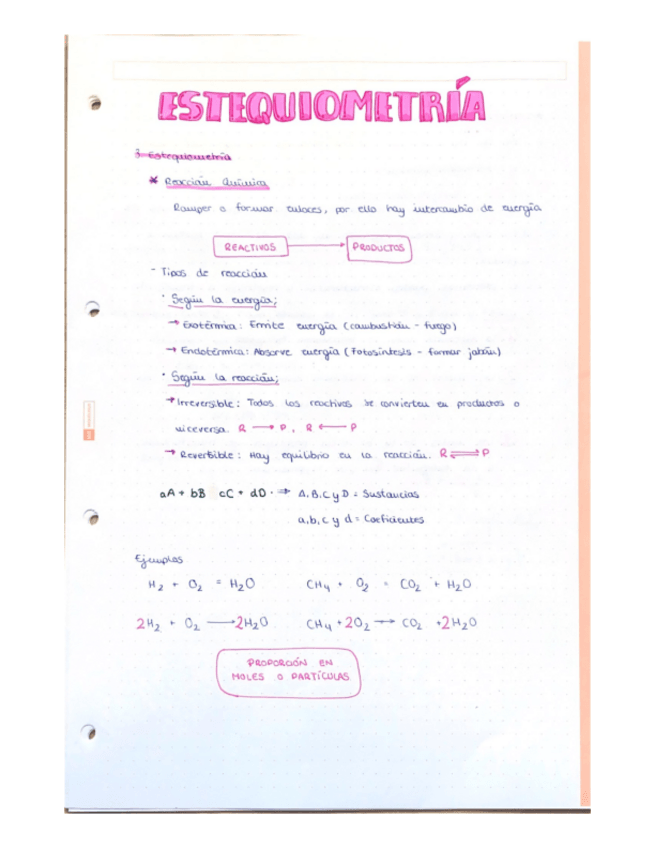 ESTEQUIOMETRÍA
3. Estequiometría
* Reacción Química
Romper o formar enlaces, por ello hay intercambio de energía
REACTIVOS → PRODUCTOS
- Tipos de reacción
· Según la energía;
→ Exotérmica: Emite energía (combustión - fuego)
→ Endotérmica: Absorve energía (fotosíntesis - formar jabón)
· Según la reacción;
→ Irreversible: Todos los reactivos se convierten en productos o
viceversa. R → P, R ← P
→ Reversible: Hay equilibrio en la reacción. R ⇌ P
aA + bB cC + dD · → A, B, C y D = Sustancias
a, b, c y d = Coeficientes
Ejemplos
H₂ + O₂ = H₂O CH₄ + O₂ = CO₂ + H₂O
2H₂ + O₂ → 2H₂O CH₄ + 2O₂ → CO₂ + 2H₂O
PROPORCIÓN EN
MOLES O PARTÍCULAS